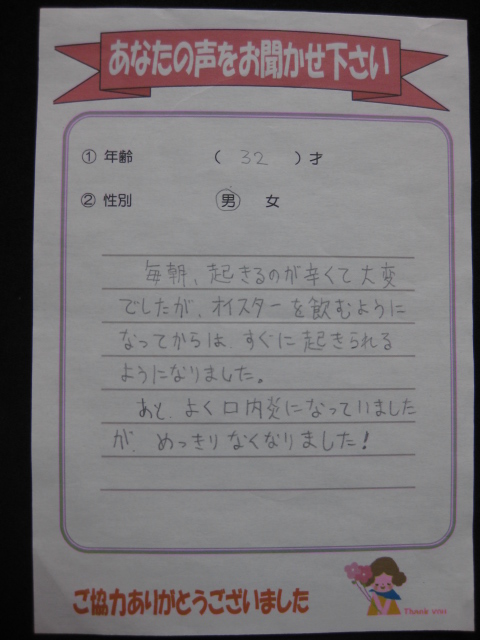 あなたの声をお聞かせ下さい
① 年齢 ( 32 ) 才
② 性別 男 女
毎朝、起きるのが辛くて大変
でしたが、オイスターを飲むように
なってからは、すぐに起きられる
ようになりました。
あと、よく口内炎になっていました
が、めっきりなくなりました!
ご協力ありがとうございました
Thank you